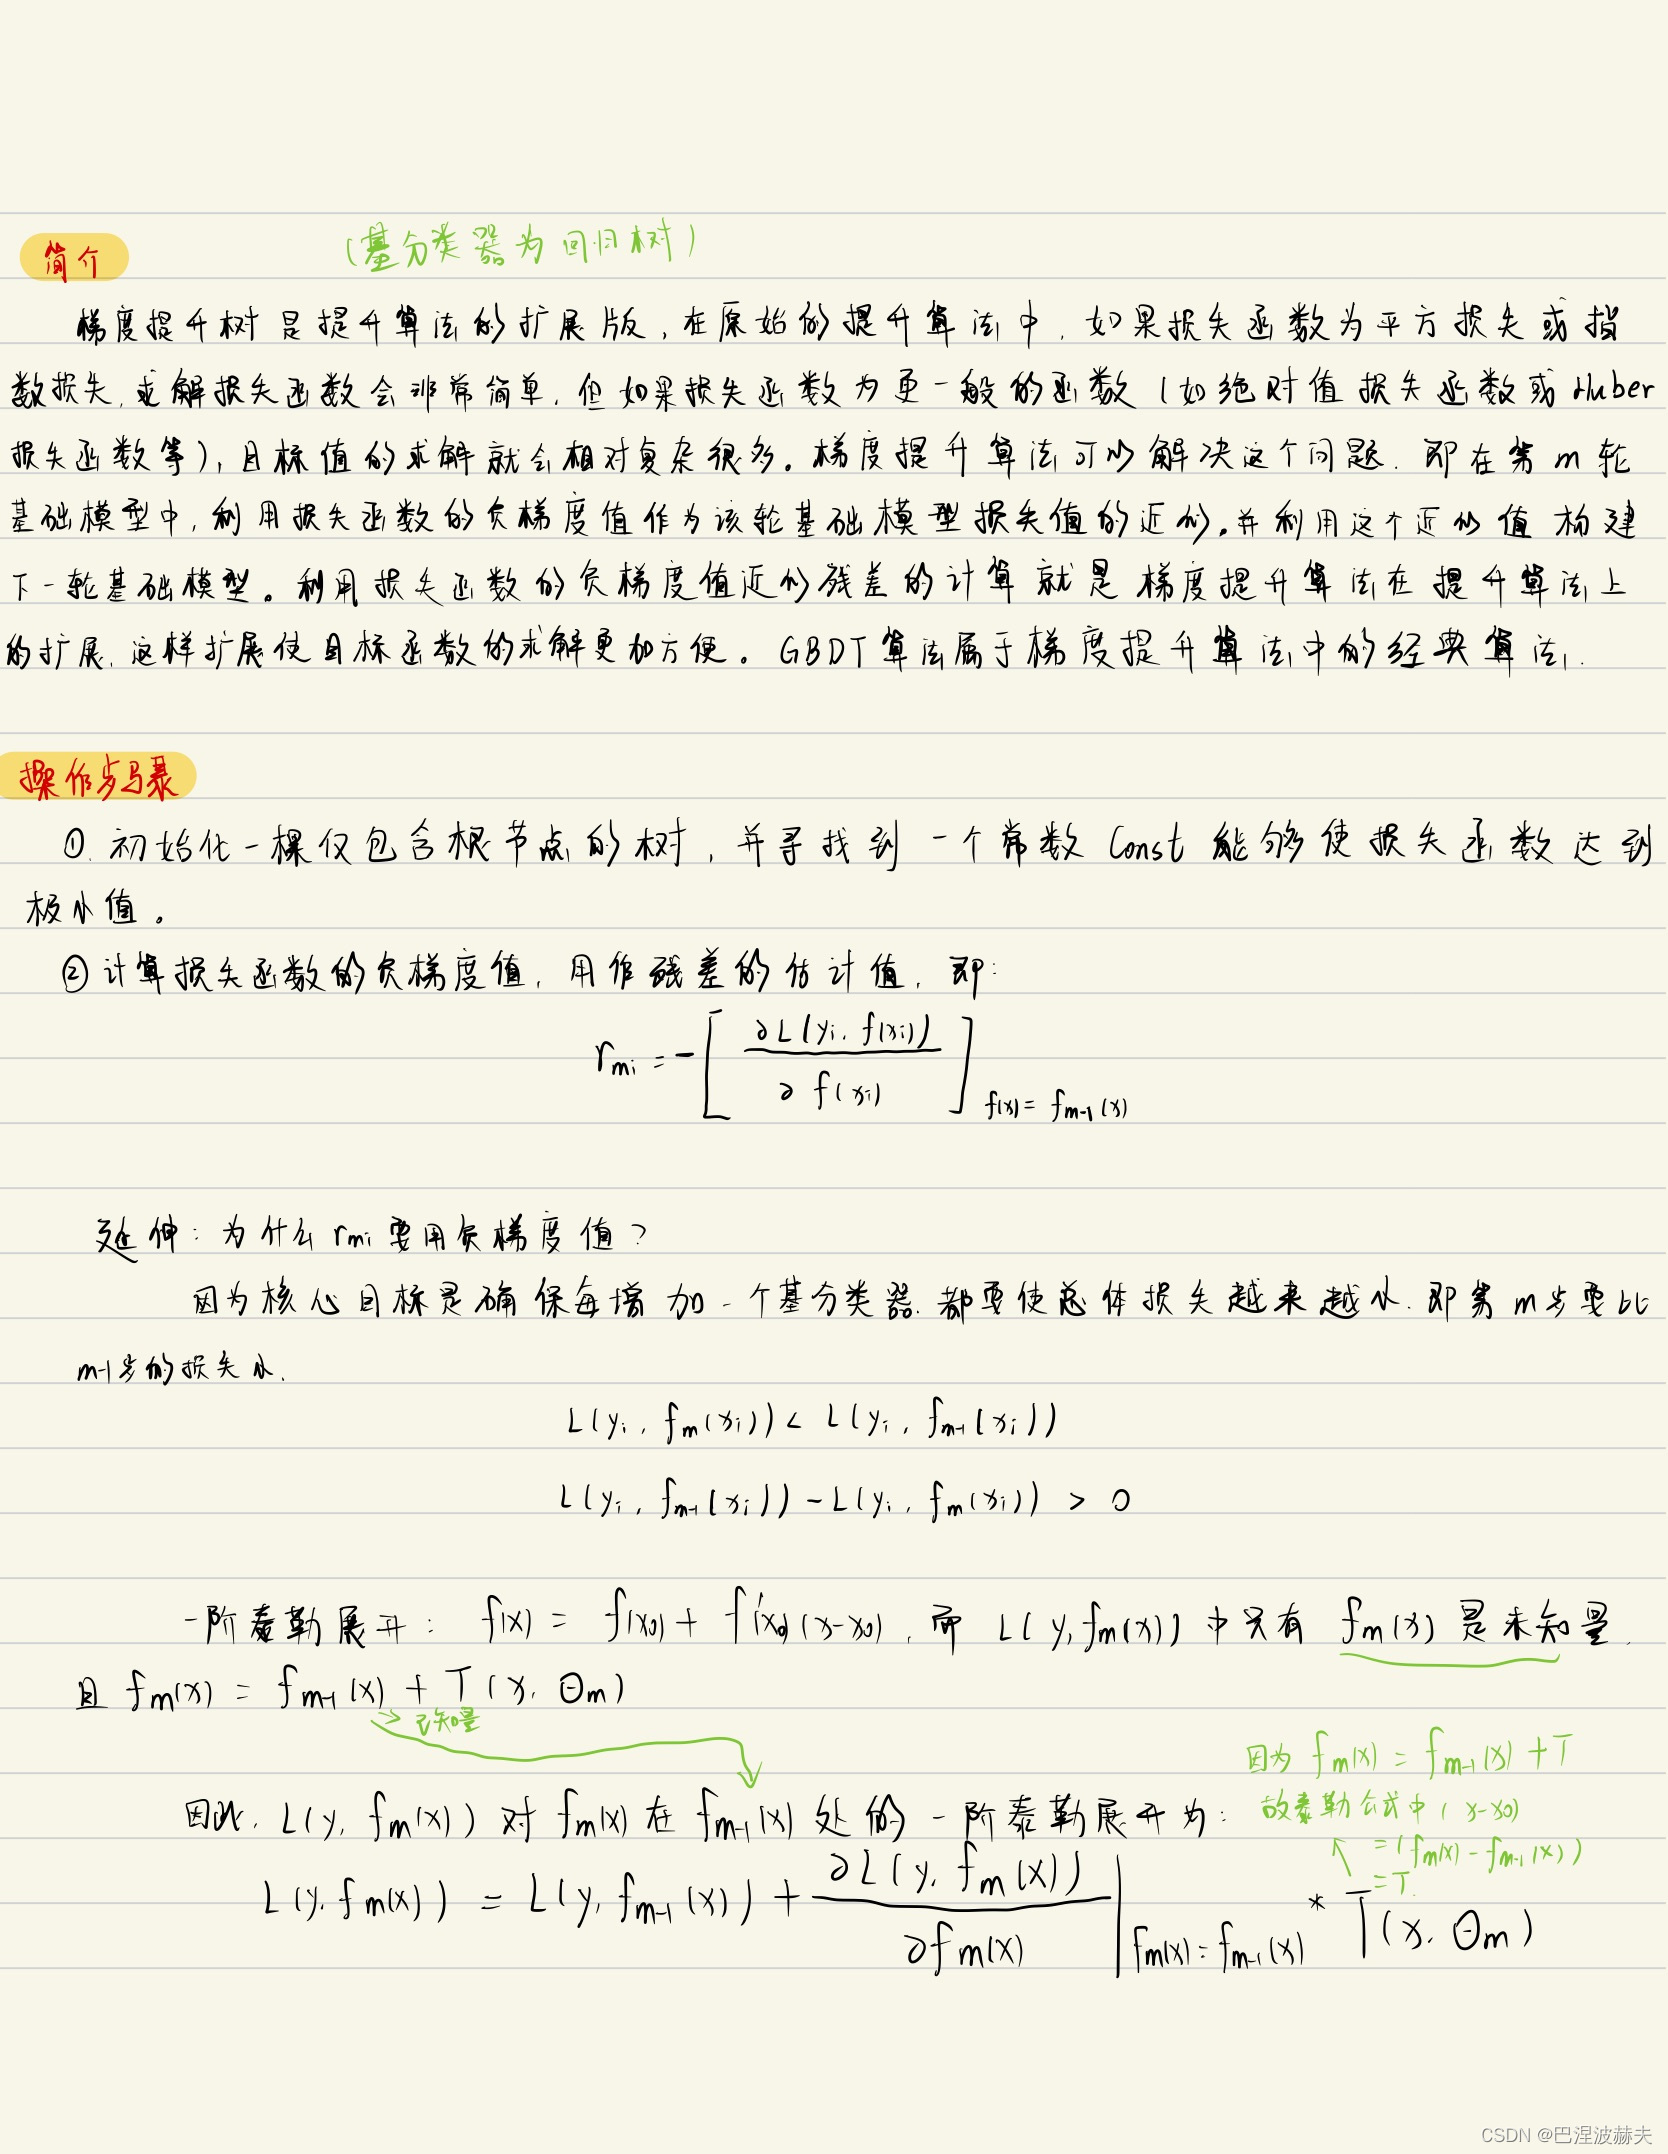 简介
(基分类器为回归树)
梯度提升树是提升算法的扩展版,在原始的提升算法中,如果损失函数为平方损失或指
数损失,求解损失函数会非常简单,但如果损失函数为更一般的函数(如绝对值损失函数或Huber
损失函数等),目标值的求解就会相对复杂很多。梯度提升算法可以解决这个问题.即在第m轮
基础模型中,利用损失函数的负梯度值作为该轮基础模型损失值的近似。并利用这个近似值构建
下一轮基础模型。利用损失函数的负梯度值近似残差的计算就是梯度提升算法在提升算法上
的扩展,这样扩展使目标函数的求解更加方便。GBDT算法属于梯度提升算法中的经典算法.
操作步骤
①.初始化一棵仅包含根节点的树,并寻找到一个常数Const能够使损失函数达到
极小值。
②计算损失函数的负梯度值,用作残差的估计值,即:
r_{mi} = -[ ∂L(y_i, f(x_i)) / ∂f(x_i) ]_{f(x) = f_{m-1}(x)}
延伸:为什么r_{mi}要用负梯度值?
因为核心目标是确保每增加一个基分类器.都要使总体损失越来越小.即第m步要比
m-1步的损失小.
L(y_i, f_m(x_i)) < L(y_i, f_{m-1}(x_i))
L(y_i, f_{m-1}(x_i)) - L(y_i, f_m(x_i)) > 0
一阶泰勒展开: f(x) = f(x_0) + f'(x_0)(x-x_0),而 L(y, f_m(x))中只有 f_m(x) 是未知量,
且 f_m(x) = f_{m-1}(x) + T(x, θ_m)
已知量
因为 f_m(x) = f_{m-1}(x) + T
故泰勒公式中(x-x_0)
= (f_m(x) - f_{m-1}(x))
= T.
因此, L(y, f_m(x))对 f_m(x)在 f_{m-1}(x)处的一阶泰勒展开为:
L(y, f_m(x)) = L(y, f_{m-1}(x)) + ∂L(y, f_m(x)) / ∂f_m(x) |_{f_m(x) = f_{m-1}(x)} * T(x, θ_m)
CSDN @巴涅波赫夫